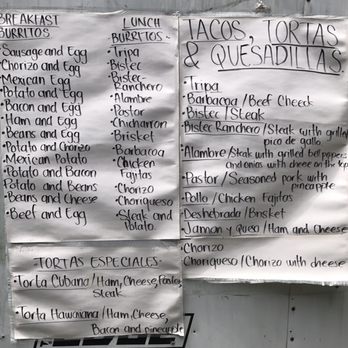 BREAKFAST
BURRITOS
Sausage and Egg
Chorizo and Egg
Mexican Egg
Potato and Egg
Bacon and Egg
Ham and Egg
Beans and Egg
Potato and Chorizo
Mexican Potato
Potato and Bacon
Potato and Beans
Beans and Cheese
Beef and Egg
LUNCH
BURRITOS
Tripa
Bistec
Bistec-
Ranchero
Alambre
Pastor
Chicharron
Brisket
Barbacoa
Chicken
Fajitas
Chorizo
Choriqueso
Steak and
Potato
TACOS, TORTAS
& QUESADILLAS
Tripa
Barbacoa/Beef Cheek
Bistec/Steak
Bistec Ranchero/Steak with grilled
pico de gallo
Alambre/Steak with grilled bell peppers
and onions with cheese on the top
Pastor/Seasoned pork with
pineapple
Pollo/Chicken Fajitas
Deshebrada/Brisket
Jamon y Queso/Ham and Cheese
Chorizo
Choriqueso/Chorizo with cheese
TORTAS ESPECIALES
Torta Cubana/Ham, Cheese,
Steak
Torta Hawaiana/Ham, Cheese,
Bacon and pineapple